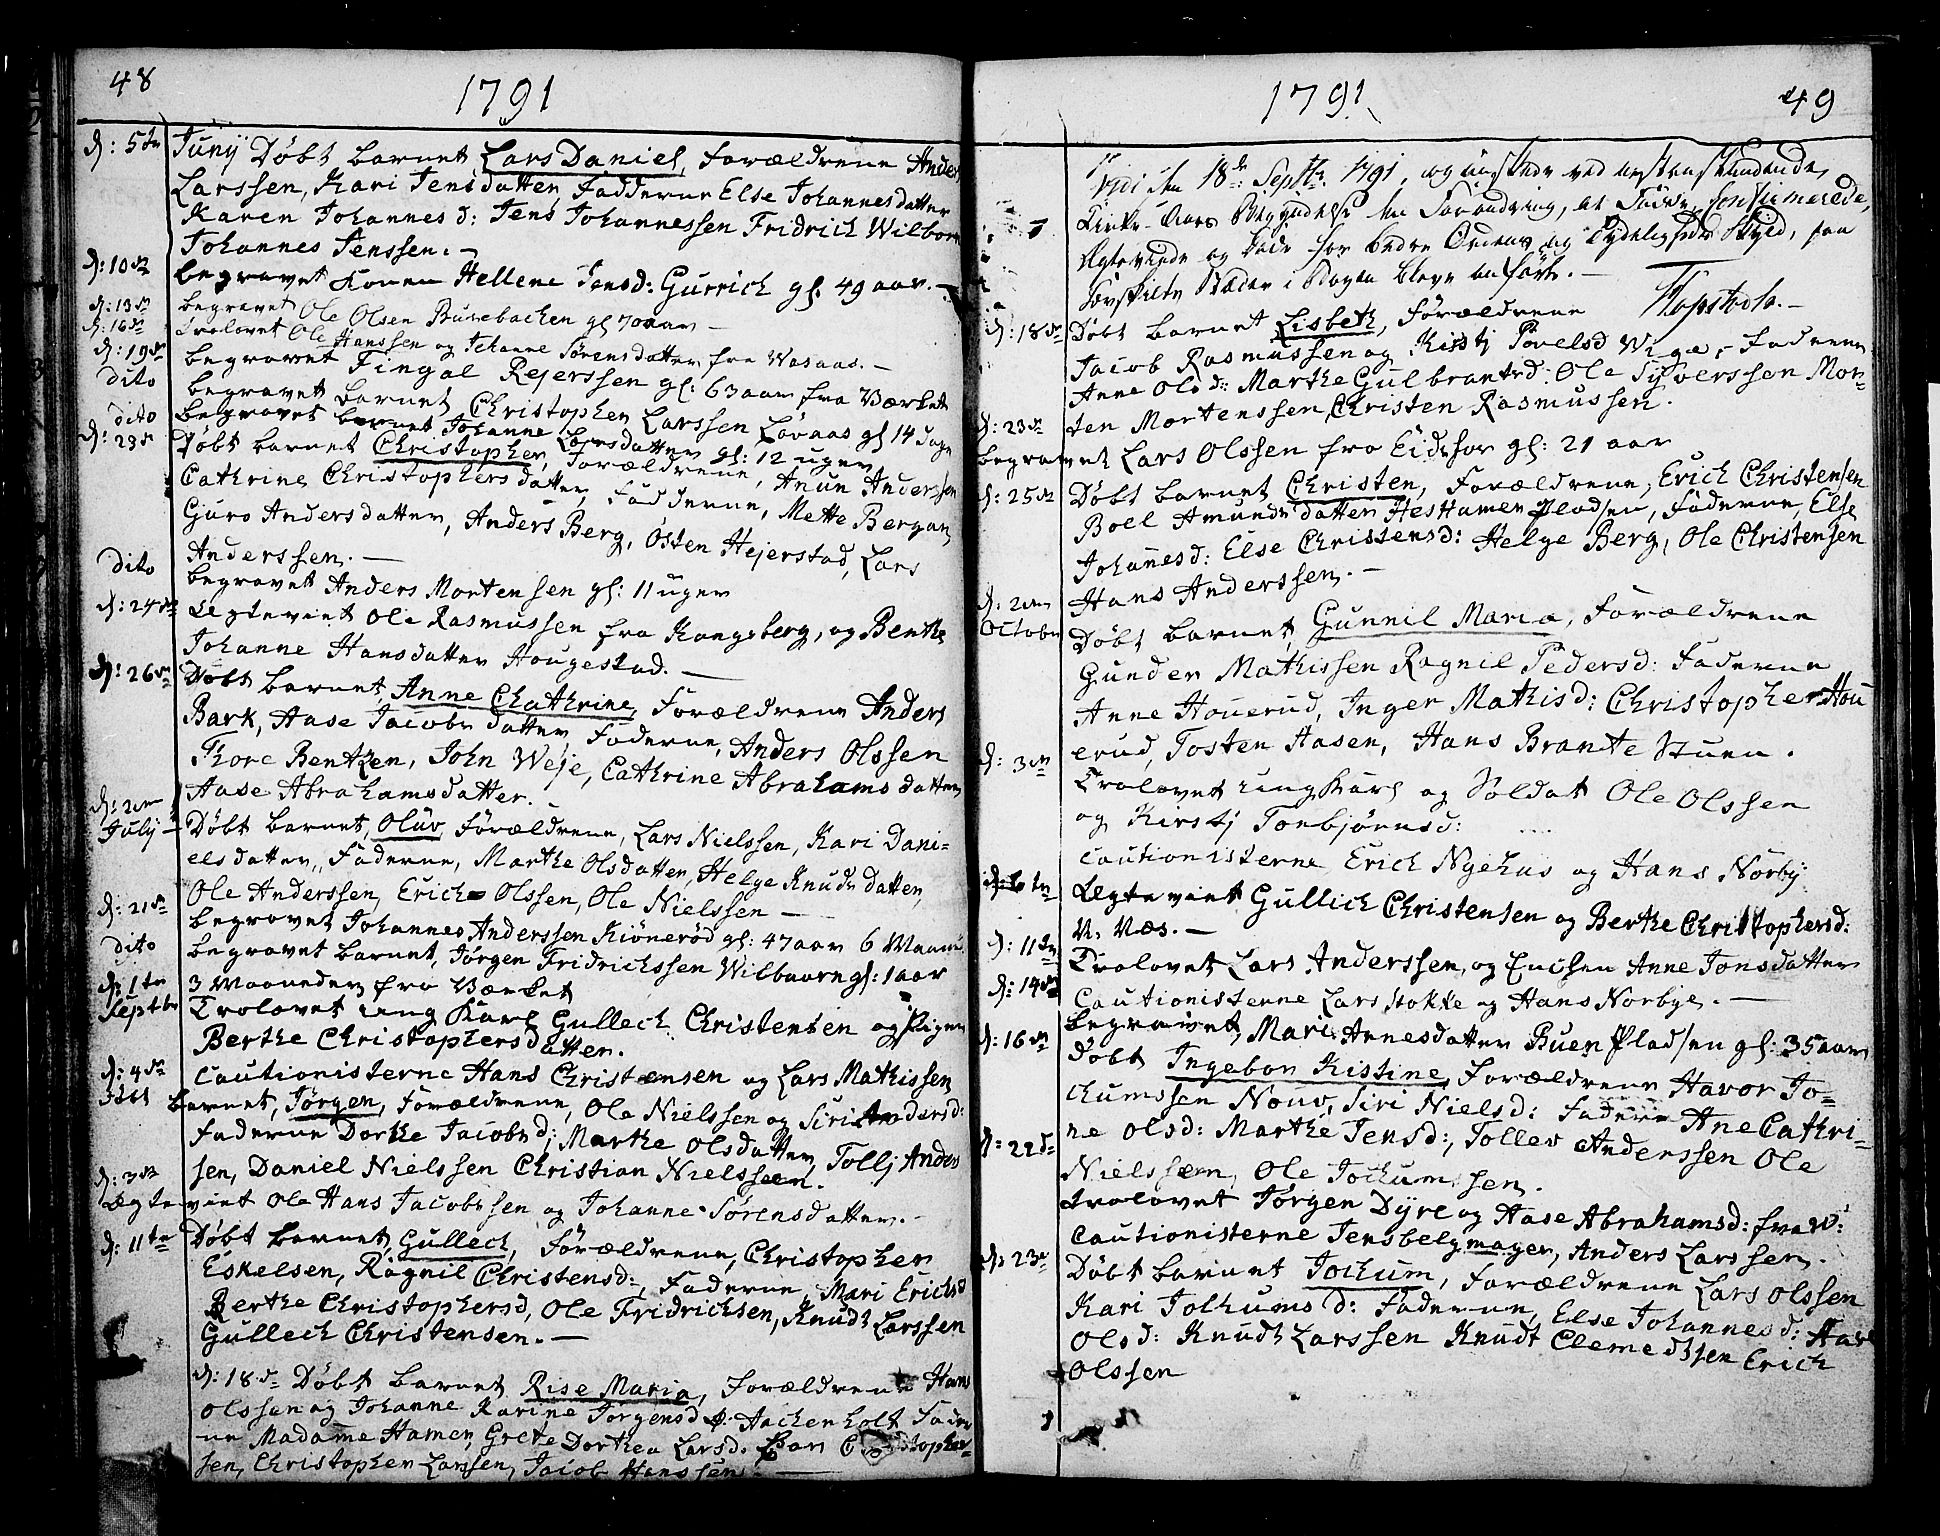 48
1791
d: 5te Junÿ Døbt barnet Lars Daniel, Forældrene Anders
Larssen, Kari Jensdatter, Fadderne Else Johannesdatter
Karen Johannesd: Jens Johannessen Fridrich Wilborn
Johannes Jenssen. —
d: 10de begravet Konen Hellene Jensd: Gurrich gl: 49 aar. —
d: 13de begravet Ole Olsen Busebachen gl 70 aar —
d: 16de Trolovet Ole Hanssen og Johanne Sørensdatter fra Wasaas. —
d: 19de begravet Fingal Rejerssen gl: 63 aar fra Værket
dito begravet barnet Christopher Larssen Løvaas gl 14 dage
dito begravet barnet Johanne Larsdatter gl: 12 uger
d: 23de Døbt barnet Christopher, Forældrene, Anun Anderssen
Cathrine Christophersdatter, Fadderne, Mette Bergan,
Guro Andersdatter, Anders Berg, Østen Hejerstad, Lars
Anderssen. —
dito begravet Anders Mortensen gl: 11 uger
d: 24de Ægteviet Ole Rasmussen fra Kongsberg, og Benthe
Johanne Hansdatter Hougestad. —
d: 26de Døbt barnet, Anne Chathrine, Forældrene Anders
Bark, Aase Jacobsdatter Faderne, Anders Olssen
Thore Bentzen, John Weje, Cathrine Abrahamsdatter
Aase Abrahamsdatter.
d: 2en July — Døbt barnet, Oluv, Forældrene, Lars Nielssen, Kari Dani-
elsdatter, Faderne, Marthe Olsdatter, Helge Knudsdatter,
Ole Anderssen, Erich Olssen, Ole Nielssen —
d: 21de begravet Johannes Anderssen Kiønerød gl: 47 aar 6 Maan:
dito begravet barnet, Jørgen Fridrichssen Wilbuarn gl: 1 aar
3 Maaneder fra Værket
d: 1te Septbr Trolovet ung Karl Gullech Christensen og Pigen
Berthe Christophersdatter.
Cautionisterne Hans Christensen og Lars Mathissen
d: 4de Døbt barnet, Jørgen, Forældrene, Ole Nielssen og Siri Andersd:
Faderne Dorthe Jacobsd; Marthe Olsdatter, Tollj Anders
sen, Daniel Nielssen Christian Nielssen.
d: 3de Ægteviet Ole Hans Jacobssen og Johanne Sørensdatter. —
d: 11te Døbt barnet, Gullech, Forældrene, Christopher
Eskelsen, Ragnil Christensd:, Faderne, Mari Erichsd
Berthe Christophersd, Ole Fridrichsen, Knudt Larssen
Gullech Christensen. —
d: 18de Døbt barnet Rise Maria, Forældrene Hans
Olssen og Johanne Karine Jørgensd: Aachenholt Fader
ne Madame Hamer, Grete Dorthea Larsd: Christopher-
sen, Christopher Larssen, Jacob Hanssen. —
1791
49
Vidi den 18de Septbr. 1791, og ved næstanstundende
Kirke-Aars Begyndelse en Forandring, at Fødde, Confirmerede,
Ægteviede og Døde for bedre Ordens og Tydeligheds Skyld, paa
forskielte Stæder i Bogen bleve anførte. —
d: 18de Døbt barnet Lisbeth, Forældrene
Jacob Rasmussen og Kistj Povelsd Wige, Faderne
Anne Olsd: Marthe Gulbrantsd: Ole Syverssen Mor-
ten Mortenssen, Christen Rasmussen.
d: 23de begravet Lars Olssen fra Eidsfos gl: 21 aar
d: 25de Døbt barnet, Christen, Forældrene, Erich Christensen
Boel Amundsdatter Hesthamer Pladsen, Faderne, Else
Johanesd: Else Christensd: Helge Berg, Ole Christensen
Hans Anderssen. —
d: 2en Octobr Døbt barnet, Gunnil Maria, Forældrene
Gunder Mathissen Ragnil Pedersd: Faderne
Anne Houerud, Inger Mathisd: Christopher Hou
erud, Tosten Aasen, Hans Brante Stuen.
d: 3de Trolovet ung Karl og Soldat Ole Olssen
og Kirstj Tonbjørnsd:
Cautionisterne Erich Nyehus og Hans Norby
d: 6te Ægteviet Gullich Christensen og Berthe Christophersd:
N. Næs. —
d: 11te Trolovet Lars Anderssen, og Enchen Anne Jonsdatter
Cautionisterne Lars Stokke og Hans Norbye. —
d: 14de begravet, Mari Arnesdatter Buen Pladsen gl: 35 aar
d: 16de Døbt Ingebor Kistine, Forældrene Havor Jo-
chumssen Nouv, Siri Nielsd: Faderne Ane Cathri-
ne Olsd: Marthe Jensd:, Tollev Anderssen Ole
Nielssen, Ole Jochumssen.
d: 22de Trolovet Jørgen Dyre og Aase Abrahamsd: fra W:
Cautionisterne Jens belgmager, Anders Larssen.
d: 23de Døbt barnet Jochum, Forældrene Lars Olssen
Kari Jolhumsd: Faderne, Else Johannesd:
Olsd: Knudt Larssen Knudt Clemedtsen Erich
Olssen